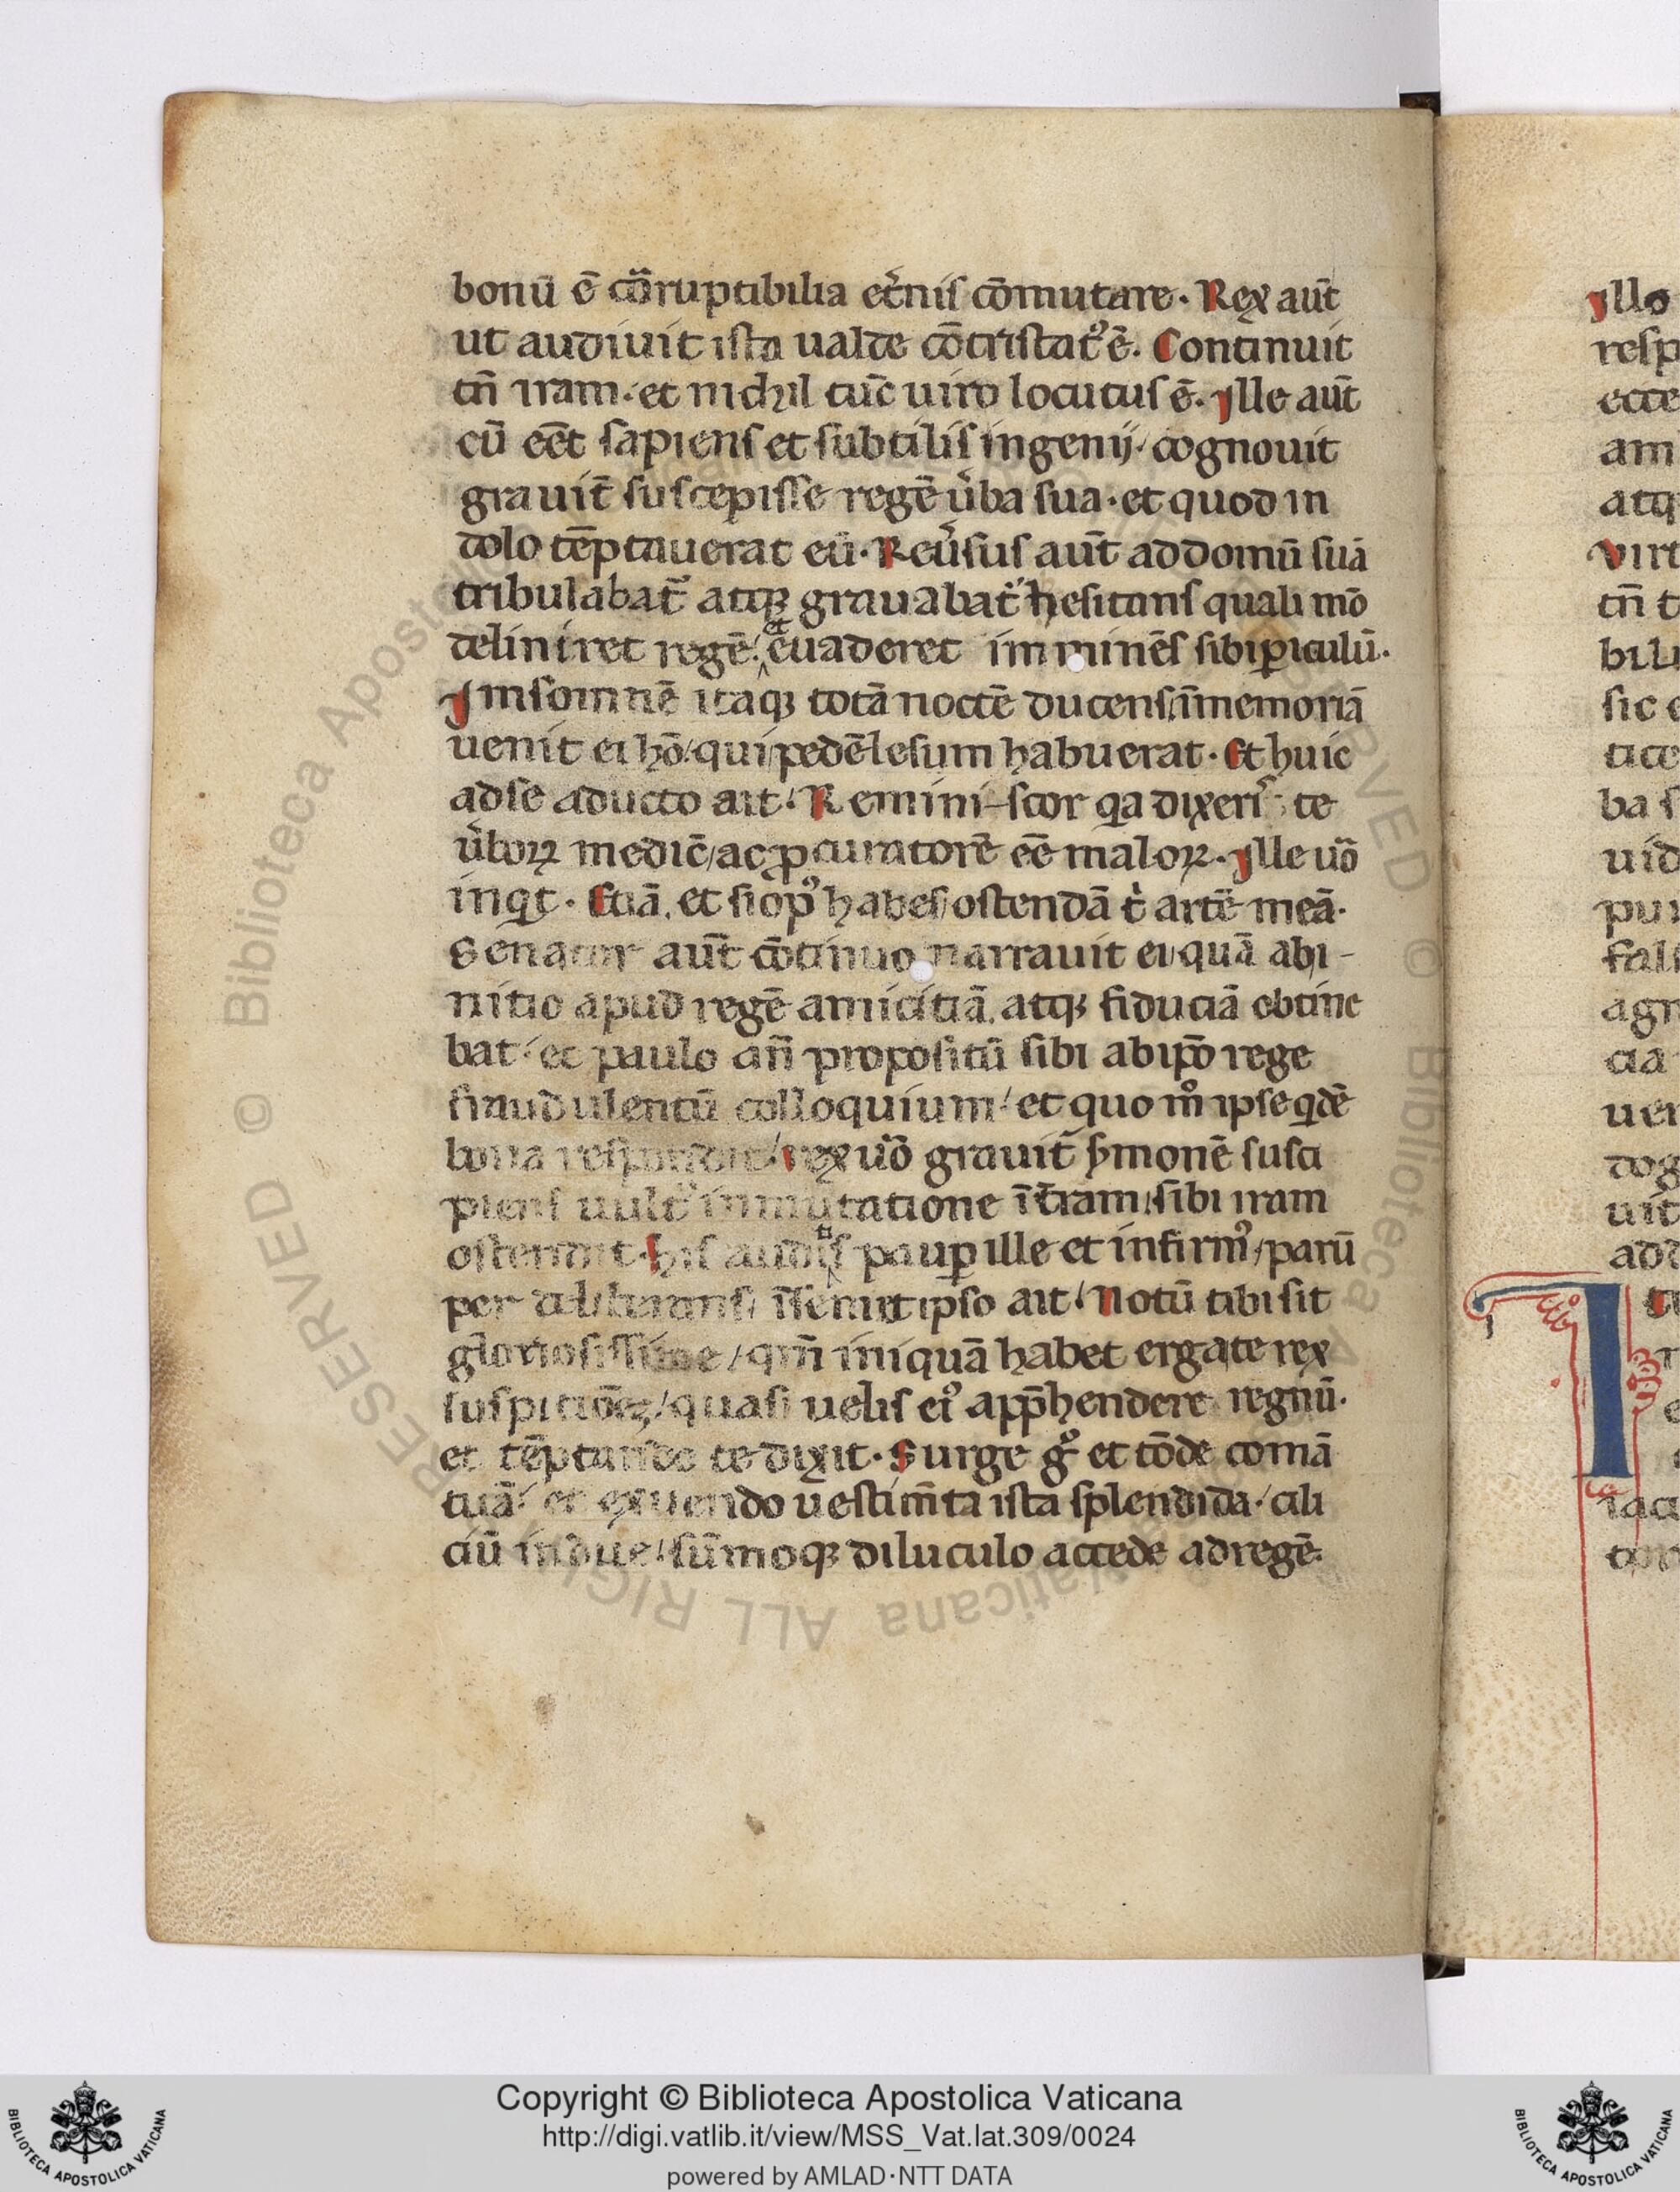 bonū ē cōruptibilia et̄nis cōmutare. Rex aut̄
ut audiuit ista ualde cōtristatꝰ ē. Continuit
tn̄ iram. et nichil tūc uiro locutus ē. Ille aut̄
cū eēt sapiens et subtilis ingenij cognouit
grauit̄ suscepisse regē ův̄ba sua. et quod in
dolo tēptauerat eū. Reuͤsus aut̄ ad domū suā
tribulabat̄ atqꝫ grauabat̄ hesitans quali mō
deliniret regē et euaderet imminēs sibi ꝑiculū.
Imsomnē itaqꝫ totā noctē ducens in memoriā
uenit ei hō qui pedē lesum habuerat. Et huic
ad se aducto ait. Reminiscor qa dixeris te
ůboꝝ medicū ac ꝓcuratorē eē maloꝝ. Ille uo̊
inqt. Etiā, et si opꝰ habes ostendā t̍ artē meā.
Senator aut̄ cōtinuo narrauit ei quā abi-
nitio apud regē amicitiā, atqꝫ fiduciā obtine
bat et paulo an̄ propositū sibi ab ipō rege
fraudulentū colloquium et quo m̊ ipse qdē
bona respondit rex uo̊ grauit̄ s̉monē susci
piens uult inmutatione it̄ram sibi iram
ostendit. his auditis paup̱ ille et infirmꝰ parū
per deliberans insemet ipso ait Notū tibi sit
gloriosissime qm̄ iniquā habet erga te rex
suspitiōeꝫ quasi uelis eiꝰ app̄hendere regnū.
et tēptando te dixit. Surge g̊ et tōde comā
tuā et exuendo uestim̄ta ista splendida cili
ciū indue sūmoqꝫ diluculo accede ad regē.
Copyright © Biblioteca Apostolica Vaticana
http://digi.vatlib.it/view/MSS_Vat.lat.309/0024
powered by AMLAD·NTT DATA
BIBLIOTECA APOSTOLICA VATICANA
BIBLIOTECA APOSTOLICA VATICANA